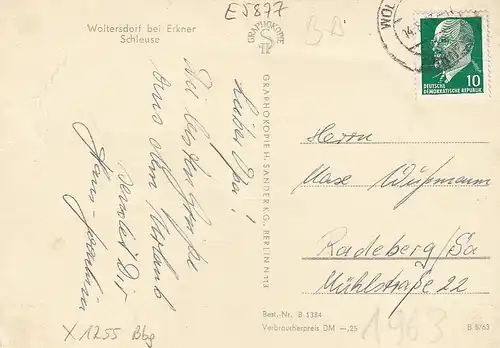 Woltersdorf bei Erkner
Schleuse
E5877
BA
GRAPHOKOPIE
WOL
14.
10
DEUTSCHE
DEMOKRATISCHE REPUBLIK
Lieber Opa!
Die besten Grüße
aus dem Urlaub
sendet Dir
Hans-Joachim
GRAPHOKOPIE H. SANDER KG., BERLIN N 113
Herrn
Max
Radeberg/Sa
Mühlstraße 22
Best.-Nr. B 1384
Verbraucherpreis DM –,25
B 8/63
1963
X 1255 Bbg